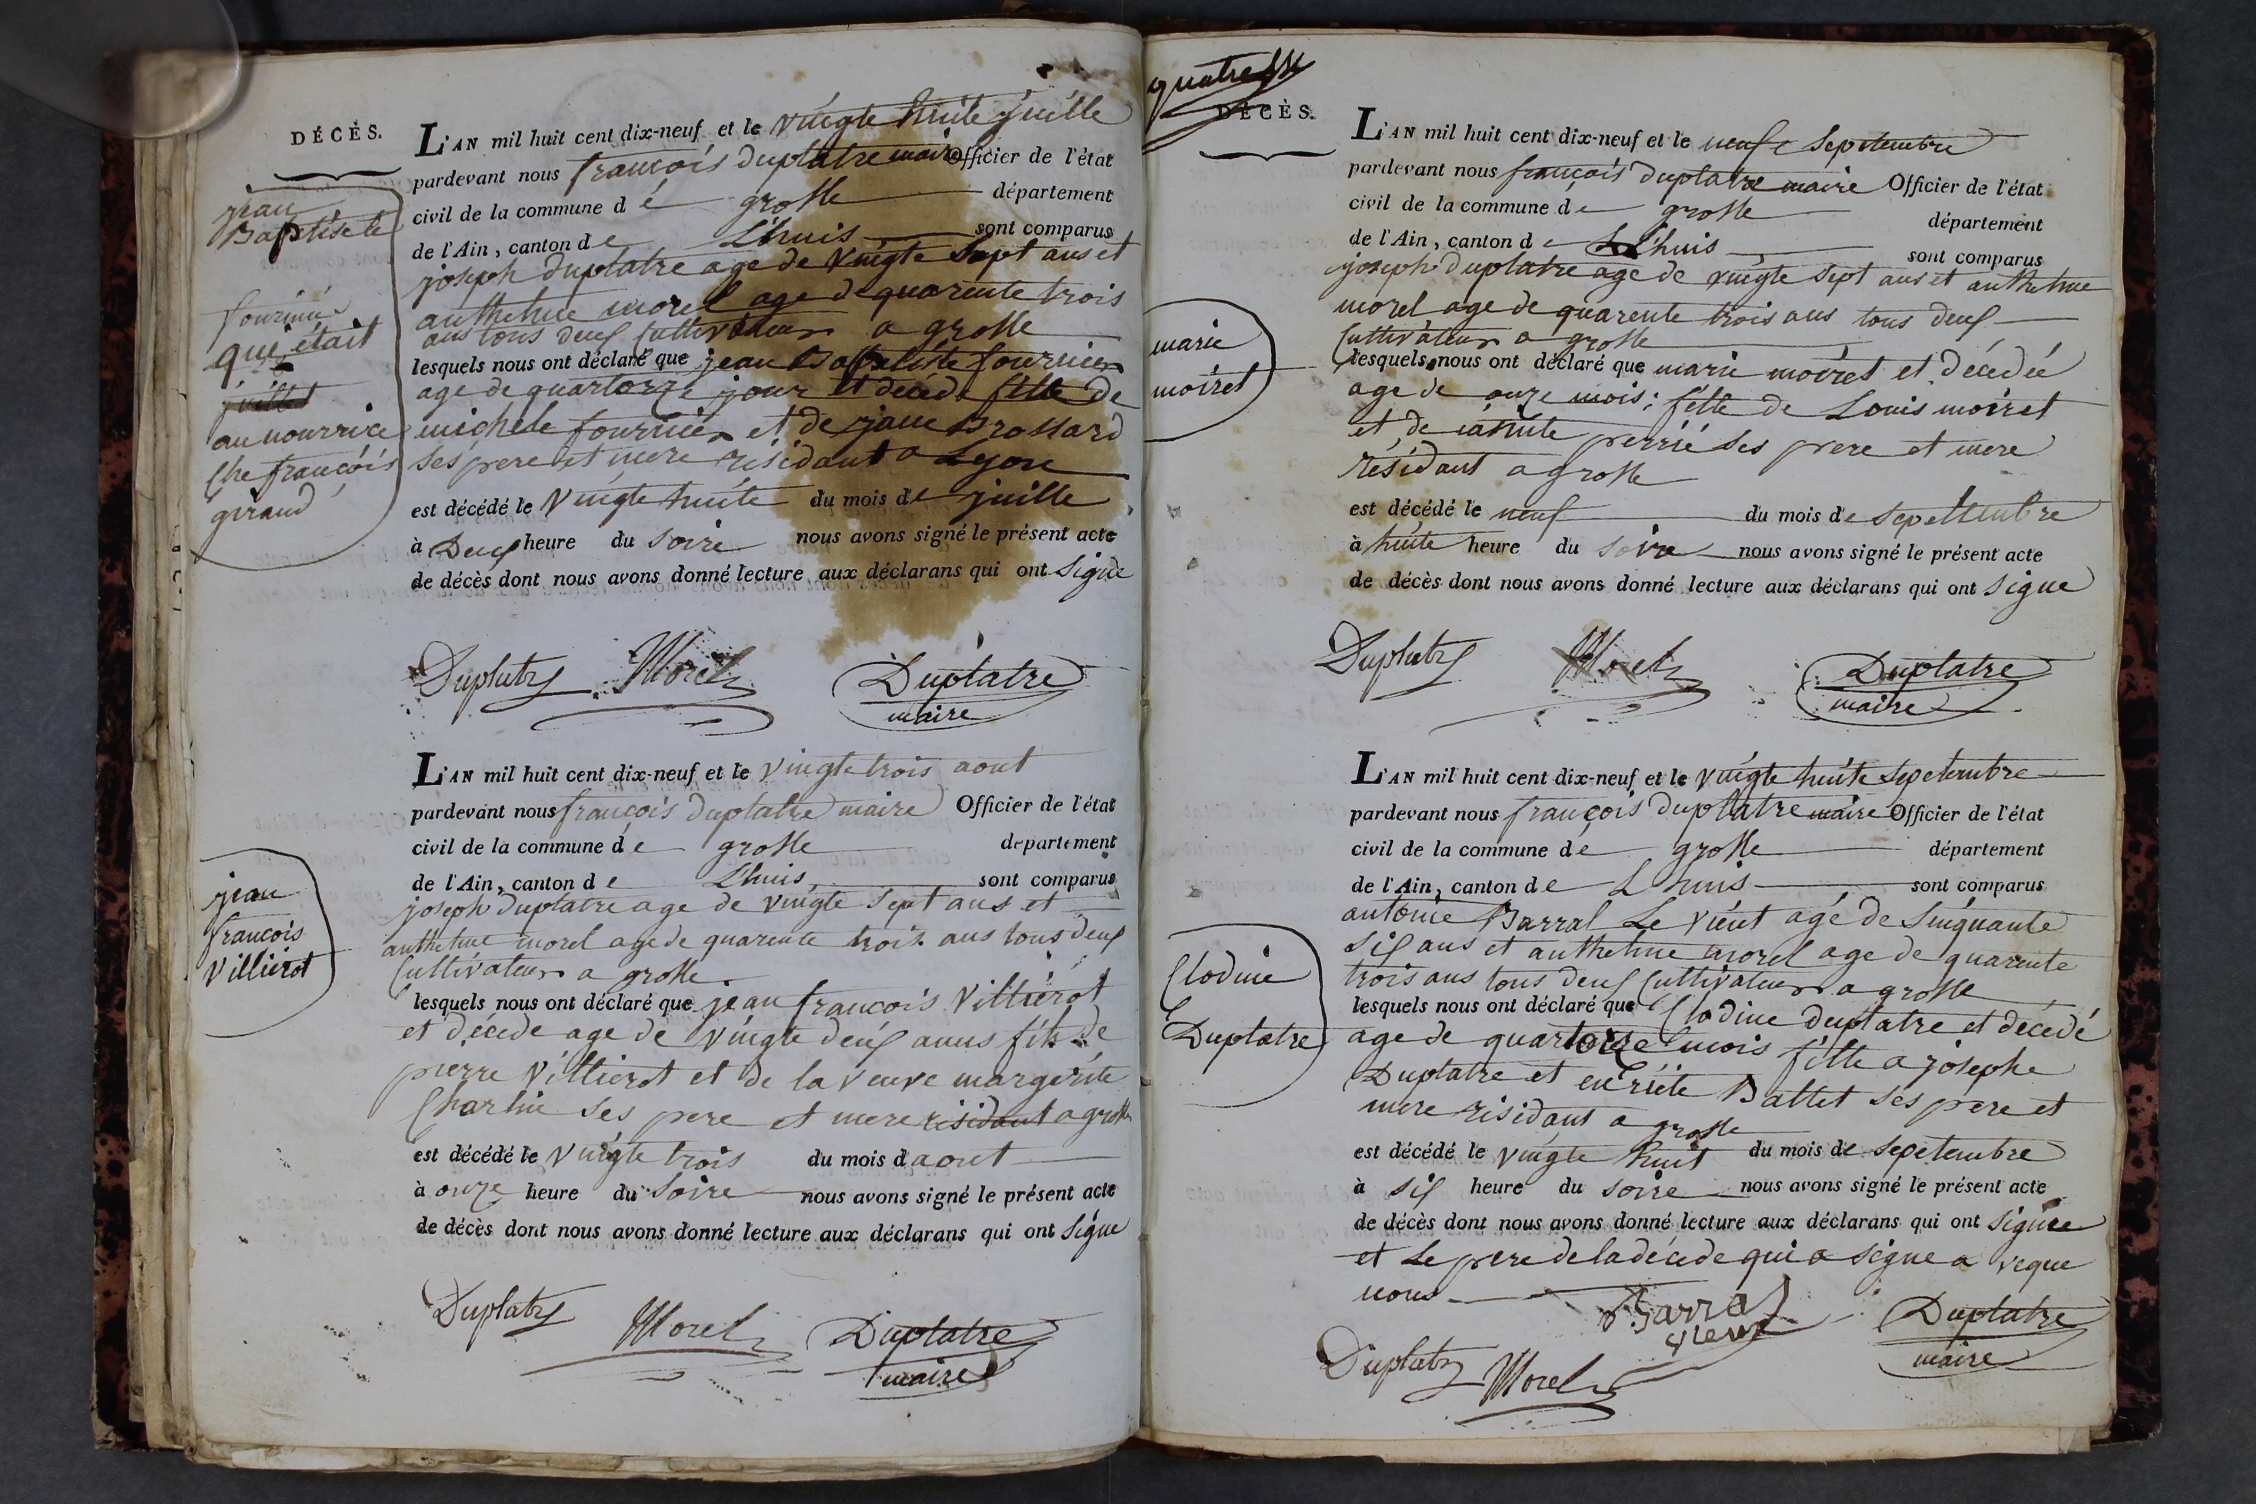 DÉCÈS.
jean
Baptiste
fournié
qui était
juillet
au nourrice
che francois
giraud
L'AN mil huit cent dix-neuf et le vingte huite juille
pardevant nous francois duplatre maire Officier de l'état
civil de la commune dé grosle département
de l'Ain, canton de L'huis sont comparus
joseph duplatre age de vingte sept ans et
anthelme morel age de quarente trois
ans tous deux Cultivateur a grosle
lesquels nous ont déclaré que jean Baptiste fournier
age de quartorze jour et décéde fille de
michele fournier et de jane Brossard
ses pere et mere residant a Lyon
est décédé le vingte huite du mois de juille
à Deux heure du soire nous avons signé le présent acte
de décès dont nous avons donné lecture aux déclarans qui ont signe
Duplatre Morel Duplatre
maire
jean
francois
villierot
L'AN mil huit cent dix-neuf et le vingte trois aout
pardevant nous francois duplatre maire Officier de l'état
civil de la commune dé grosle département
de l'Ain, canton de L'huis sont comparus
joseph duplatre age de vingte sept ans et
anthelme morel age de quarente trois ans tous deux
Cultivateur a grosle
lesquels nous ont déclaré que jean francois villierot
et décede age de vingte deux anns fils de
pierre villierot et de la veuve margerite
Charlin ses pere et mere residant a grosle
est décédé le vingte trois du mois d aout
à onze heure du soire nous avons signé le présent acte
de décès dont nous avons donné lecture aux déclarans qui ont signe
Duplatre Morel Duplatre
maire
quatre
DÉCÈS.
marie
moiret
L'AN mil huit cent dix-neuf et le neuf septembre
pardevant nous francois duplatre maire Officier de l'état
civil de la commune dé grosle département
de l'Ain, canton de L'huis sont comparus
joseph duplatre age de vingte sept ans et anthelme
morel age de quarente trois ans tous deux
Cultivateur a grosle
lesquels nous ont déclaré que marie moiret et décédée
age de onze mois; fille de Louis moiret
et de perrié ses pere et mere
résidant a grosle
est décédé le neuf du mois de sepetembre
à huite heure du soire nous avons signé le présent acte
de décès dont nous avons donné lecture aux déclarans qui ont signe
Duplatre Morel Duplatre
maire
Clodine
Duplatre
L'AN mil huit cent dix-neuf et le vingte huite sepetembre
pardevant nous francois duplatre maire Officier de l'état
civil de la commune dé grosle département
de l'Ain, canton de L huis sont comparus
antoine Barral Le vieut agé de sinquante
six ans et anthelme morel age de quarente
trois ans tous deux Cultivateur a grosle
lesquels nous ont déclaré que Clodine duplatre et décédé
age de quartorze mois fille a josephe
Duplatre et enriéte Ballet ses pere et
mere residant a grosle
est décédé le vingte huit du mois de sepetembre
à six heure du soire nous avons signé le présent acte
de décès dont nous avons donné lecture aux déclarans qui ont signée
et Le pere de la décéde qui a signe a veque
nous
Barral
vieux
Duplatre Morel Duplatre
maire